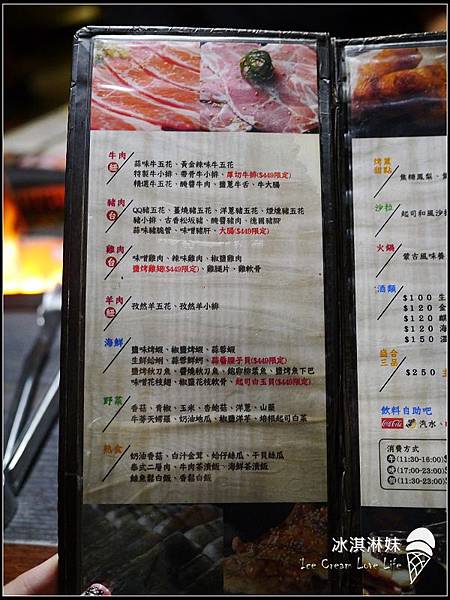 牛肉
蒜味牛五花、黃金辣味牛五花
特製牛小排、帶骨牛小排、厚切牛排($449限定)
精選牛五花、醃醬牛肉、鹽蔥牛舌、牛大腸
豬肉
台
QQ豬五花、薑燒豬五花、洋蔥豬五花、燻燒豬五花
豬小排、古香松坂豬、醃醬豬肉、德國豬腳
蒜味豬脆管、味噌豬肝、大腸($449限定)
雞肉
台
味噌雞肉、辣味雞肉、椒鹽雞肉
鹽烤雞翅($449限定)、雞腿片、雞軟骨
羊肉
孜然羊五花、孜然羊小排
海鮮
鹽味烤蝦、椒鹽烤蝦、蒜蓉蝦
生鮮蛤蜊、蒜蓉鮮蚵、蒜醬腰子貝($449限定)
鹽烤秋刀魚、醬燒秋刀魚、鹽烤魚下巴
味噌花枝翅、椒鹽花枝軟骨、起司白玉貝($449限定)
野菜
香菇、青椒、玉米、杏鮑菇、洋蔥、山藥
牛蒡天婦羅、奶油地瓜、椒鹽洋芋、培根起司白菜
熟食
奶油香菇、白汁金茸、蛤仔絲瓜、干貝絲瓜
泰式二層肉、牛肉茶漬飯、海鮮茶漬飯
鮭魚鬆白飯、香鬆白飯
甜點
焦糖鳳梨、
沙拉
起司和風沙拉
火鍋
蒙古風味
酒類
$100 生
$120 金
$120 麒
$120 海
$150
三品
$250
飲料自助吧
Coca-Cola 汽水、
消費方式
(11:30-16:00)
(17:00-23:00)
(11:30-23:00)
冰淇淋妹
Ice Cream Love Life